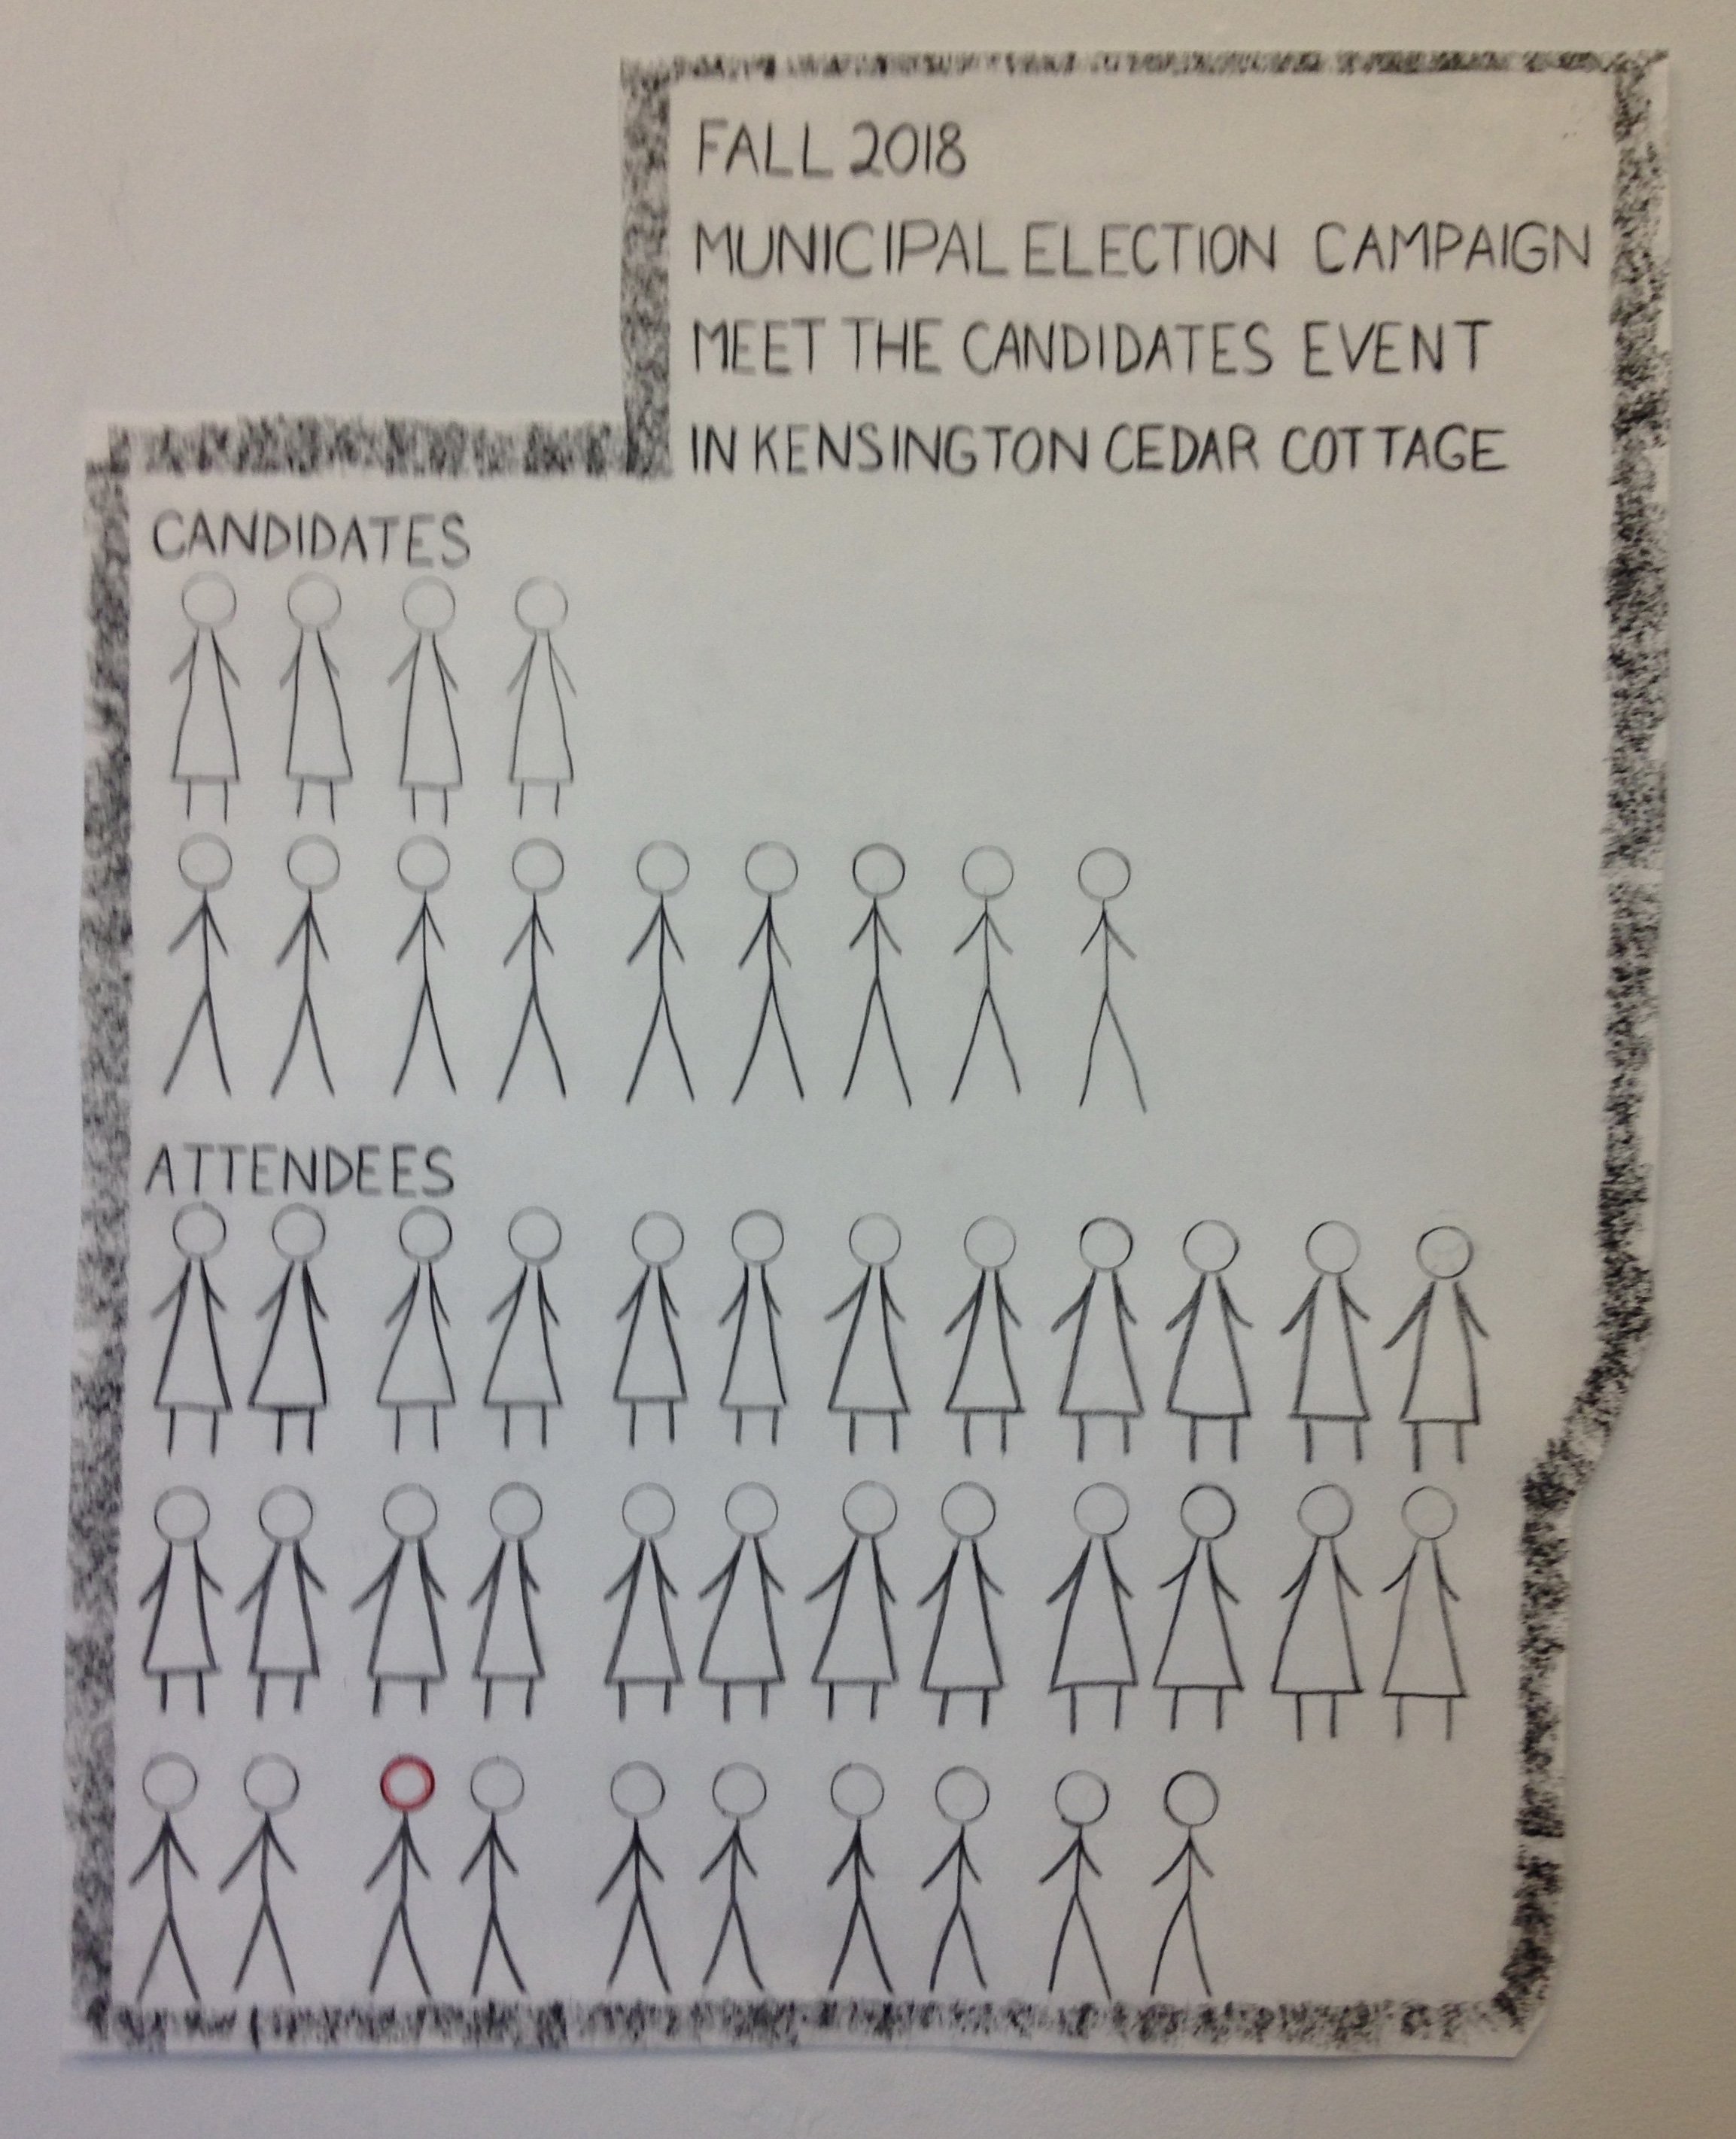 FALL 2018
MUNICIPAL ELECTION CAMPAIGN
MEET THE CANDIDATES EVENT
IN KENSINGTON CEDAR COTTAGE
CANDIDATES
ATTENDEES